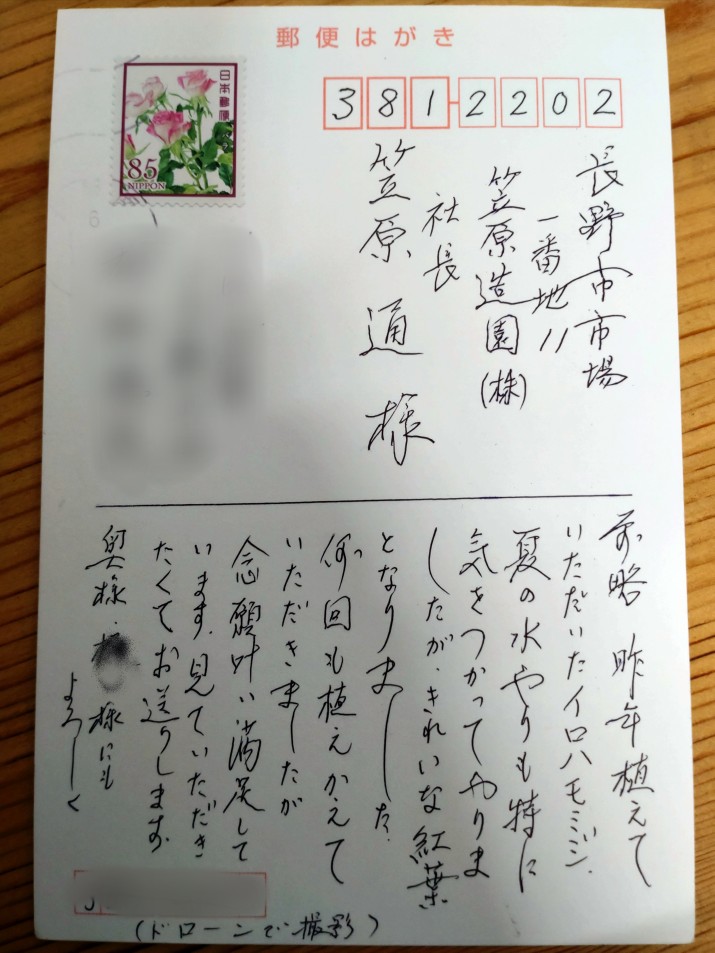 郵便はがき
日本郵便
85
NIPPON
381-2202
長野市市場
一番地11
笠原造園(株)
社長
笠原 通 様
前略 昨年植えて
いただいたイロハモミジ、
夏の水やりも特に
気をつかってやりま
したが、きれいな紅葉
となりました。
何回も植えかえて
いただきましたが
念願叶い満足して
います。見ていただき
たくてお送りします。
奥様・
様にも
よろしく
(ドローンで撮影)